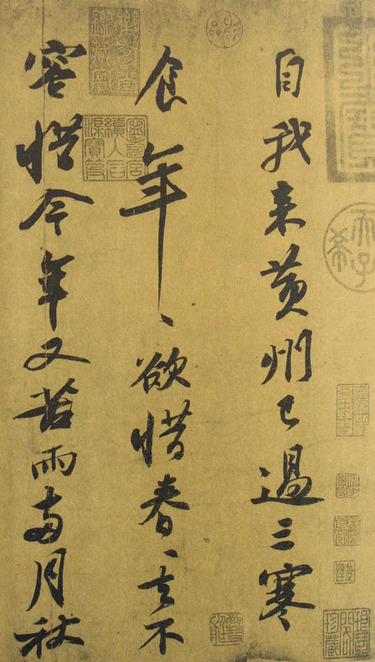 自我来黄州已過三寒
食年〻欲惜春〻去不
容惜今年又苦雨两月秋